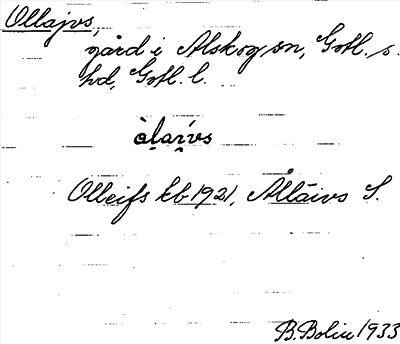 Ollajvs,
gård i Alskog sn, Gotl. s.
hd, Gotl. l.
Olleifs kb 1921, Ållaivs S.
B. Bolin 1933